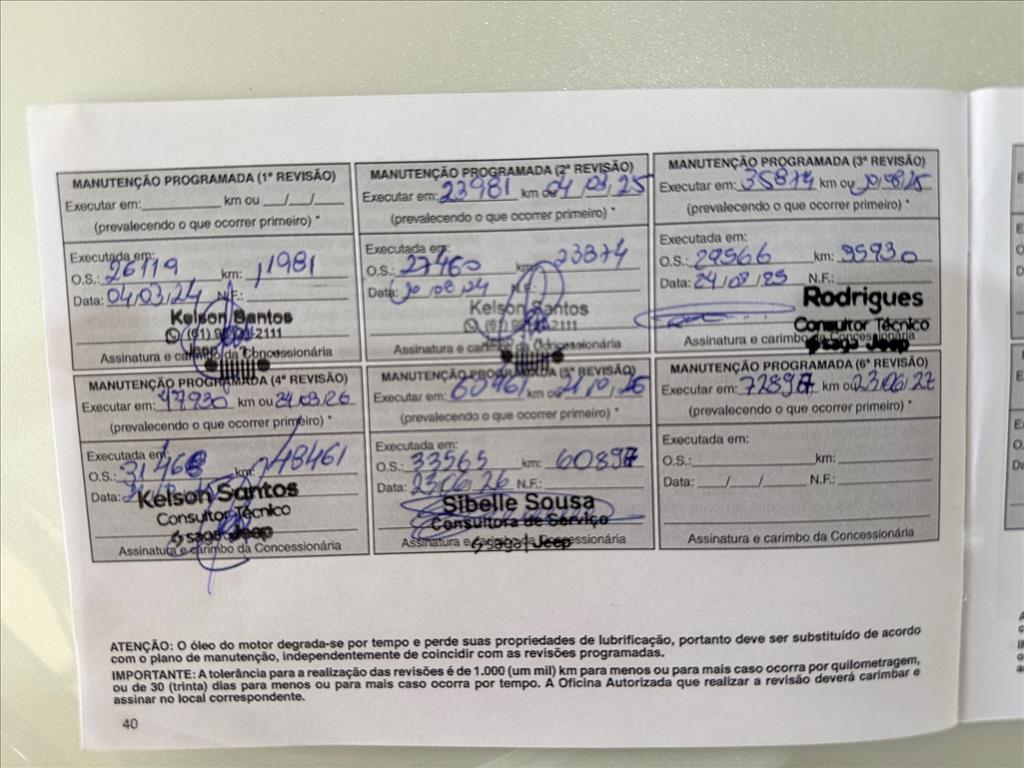 MANUTENÇÃO PROGRAMADA (1ª REVISÃO)
Executar em: km ou / /
(prevalecendo o que ocorrer primeiro) *
Executada em:
O.S.: 26119 km: 11981
Data: 04/03/24 N.F.:
Kelson Santos
2111
Assinatura e carimbo da Concessionária
MANUTENÇÃO PROGRAMADA (2ª REVISÃO)
Executar em: 23981 km ou 04/03/25
(prevalecendo o que ocorrer primeiro) *
Executada em:
O.S.: 27460 km: 23874
Data: 30/08/24 N.F.:
Kelson Santos
2111
Assinatura e carimbo da Concessionária
MANUTENÇÃO PROGRAMADA (3ª REVISÃO)
Executar em: 35874 km ou 30/08/25
(prevalecendo o que ocorrer primeiro) *
Executada em:
O.S.: 29566 km: 35930
Data: 24/03/25 N.F.:
Rodrigues
Consultor Técnico
Assinatura e carimbo da Concessionária
saga Jeep
MANUTENÇÃO PROGRAMADA (4ª REVISÃO)
Executar em: 47930 km ou 24/03/26
(prevalecendo o que ocorrer primeiro) *
Executada em:
O.S.: 31468 km: 48461
Data:
Kelson Santos
Consultor Técnico
saga Jeep
Assinatura e carimbo da Concessionária
MANUTENÇÃO PROGRAMADA (5ª REVISÃO)
Executar em: 60461 km ou 21/10/26
(prevalecendo o que ocorrer primeiro) *
Executada em:
O.S.: 33565 km: 60897
Data: 23/06/26 N.F.:
Sibelle Sousa
Consultora de Serviço
saga Jeep
Assinatura e carimbo da Concessionária
MANUTENÇÃO PROGRAMADA (6ª REVISÃO)
Executar em: 72897 km ou 23/06/27
(prevalecendo o que ocorrer primeiro) *
Executada em:
O.S.: km:
Data: / / N.F.:
Assinatura e carimbo da Concessionária
ATENÇÃO: O óleo do motor degrada-se por tempo e perde suas propriedades de lubrificação, portanto deve ser substituído de acordo
com o plano de manutenção, independentemente de coincidir com as revisões programadas.
IMPORTANTE: A tolerância para a realização das revisões é de 1.000 (um mil) km para menos ou para mais caso ocorra por quilometragem,
ou de 30 (trinta) dias para menos ou para mais caso ocorra por tempo. A Oficina Autorizada que realizar a revisão deverá carimbar e
assinar no local correspondente.
40